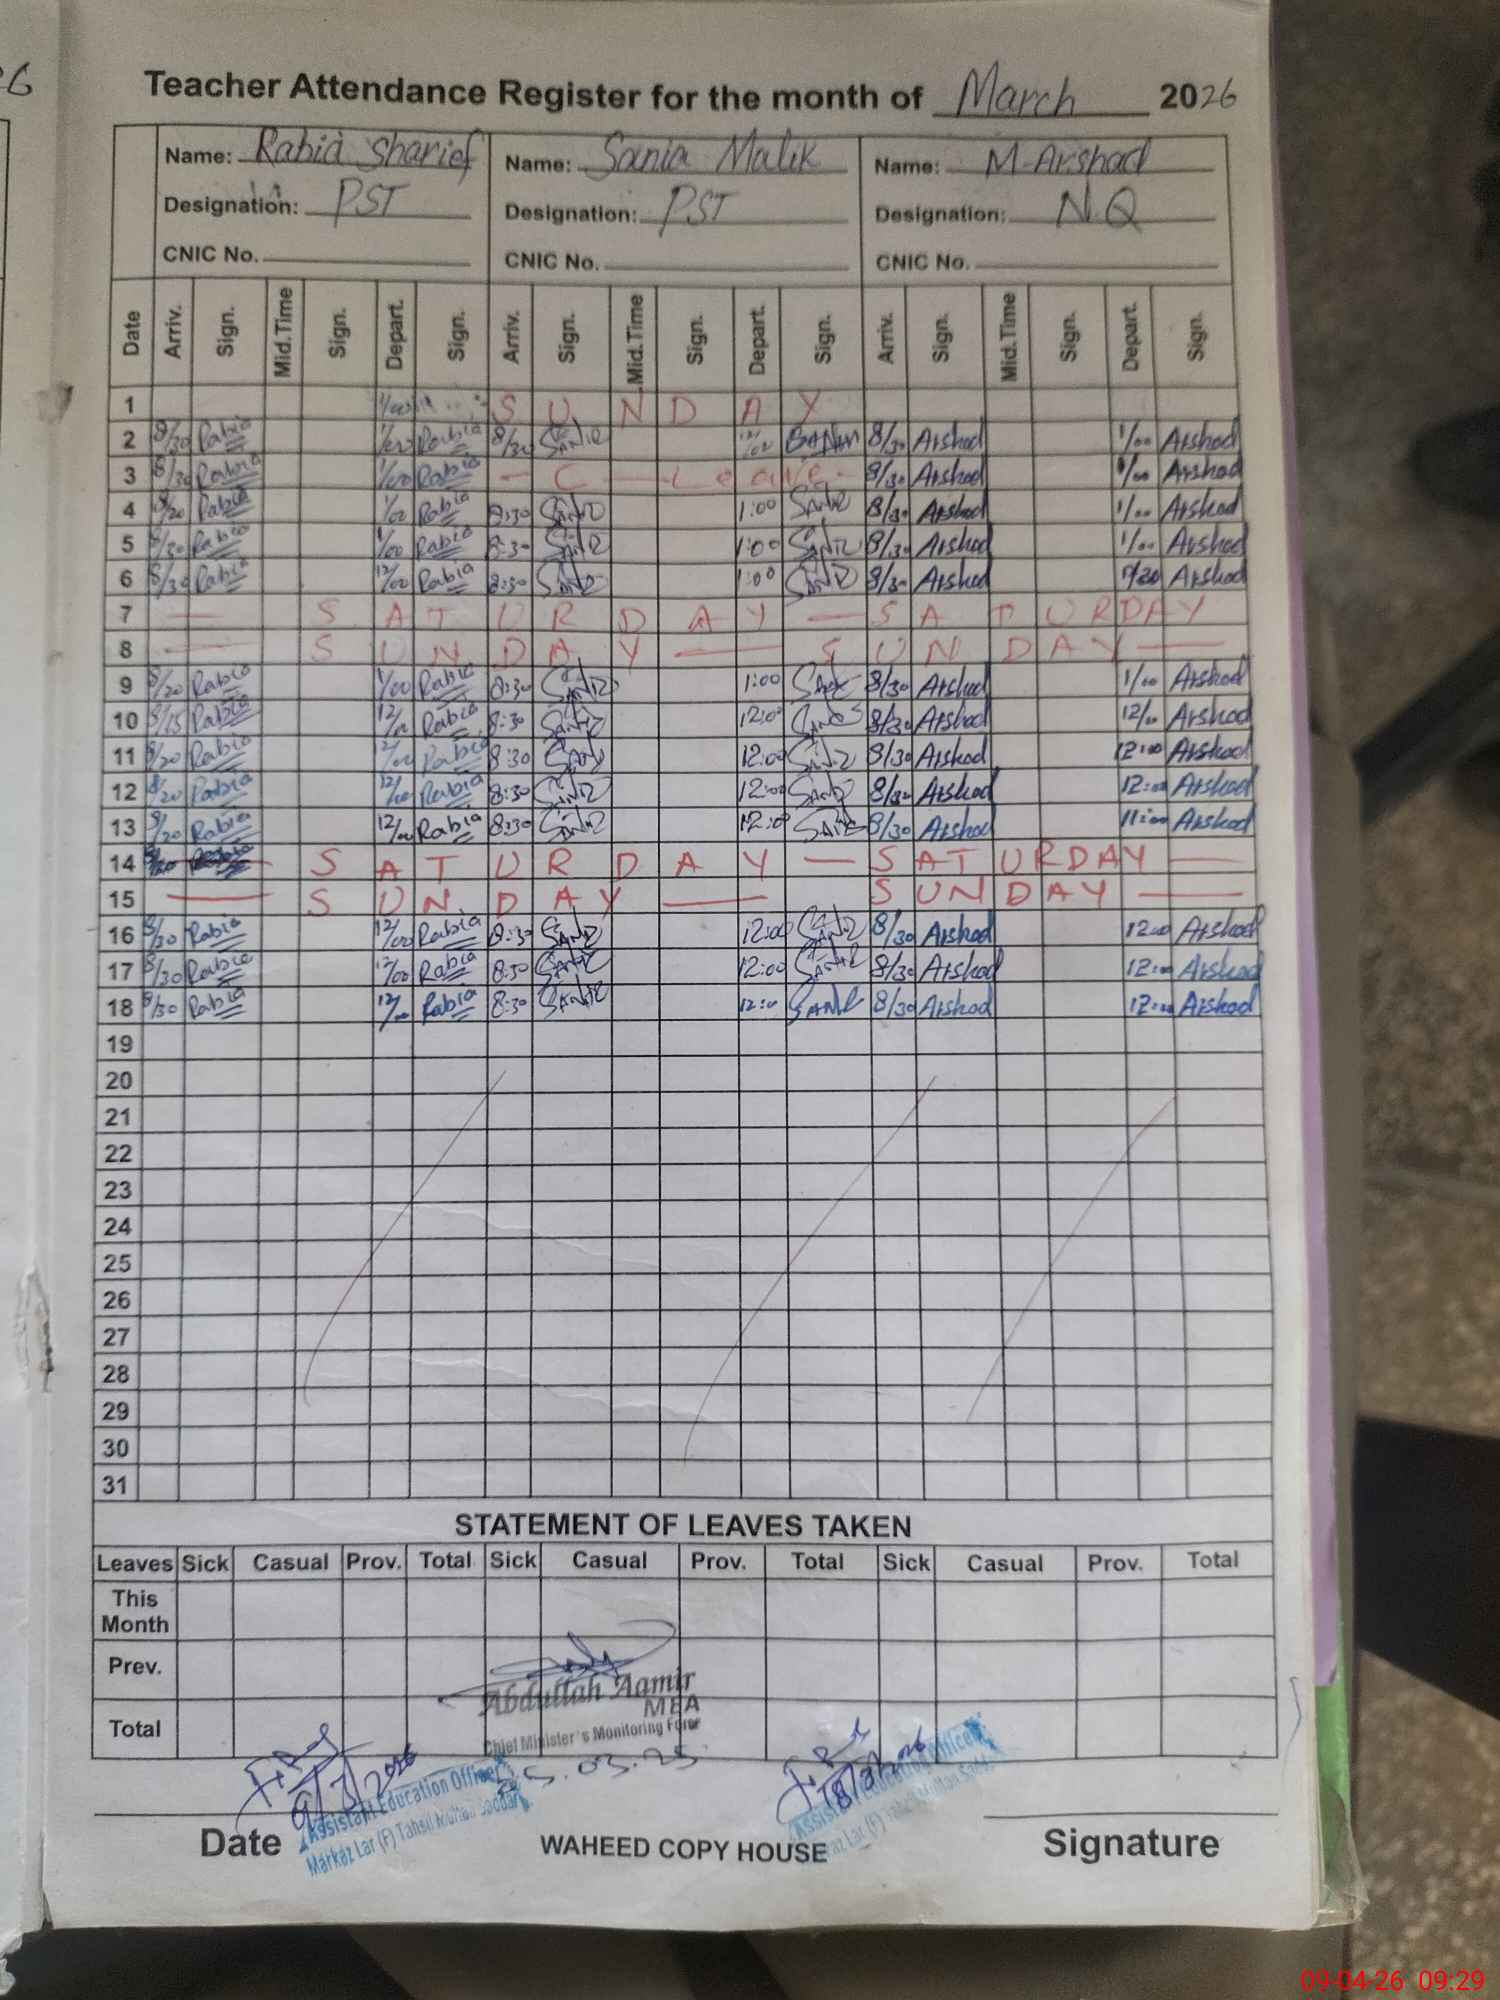 26
Teacher Attendance Register for the month of March 2026
Name: Rabia Sharief Name: Sania Malik Name: M Arshad
Designation: PST Designation: PST Designation: N.Q
CNIC No. CNIC No. CNIC No.
Date Arriv. Sign. Mid.Time Sign. Depart. Sign. Arriv. Sign. Mid.Time Sign. Depart. Sign. Arriv. Sign. Mid.Time Sign. Depart. Sign.
1 1/00 S U N D A Y
2 8/30 Rabia 1/00 Rabia 8/30 8/30 Arshad 1/00 Arshad
3 8/30 Rabia 1/00 Rabia - C - Leave - 8/30 Arshad 1/00 Arshad
4 8/20 Rabia 1/00 Rabia 8:30 1:00 8/30 Arshad 1/00 Arshad
5 8/30 Rabia 1/00 Rabia 8:30 1:00 8/30 Arshad 1/00 Arshad
6 8/30 Rabia 12/00 Rabia 8:30 1:00 8/30 Arshad Arshad
7 — S A T U R D A Y — S A T U R D A Y
8 — S U N D A Y — S U N D A Y —
9 8/20 Rabia 1/00 Rabia 8:30 1:00 8/30 Arshad 1/00 Arshad
10 8/15 Rabia 12/00 Rabia 8:30 12:00 8/30 Arshad 12/00 Arshad
11 8/20 Rabia 12/00 Rabia 8:30 12:00 8/30 Arshad 12:00 Arshad
12 8/20 Rabia 12/00 Rabia 8:30 12:00 8/30 Arshad 12:00 Arshad
13 8/20 Rabia 12/00 Rabia 8:30 12:00 8/30 Arshad 11:00 Arshad
14 — S A T U R D A Y — S A T U R D A Y —
15 — S U N D A Y — S U N D A Y —
16 8/30 Rabia 12/00 Rabia 8:30 12:00 8/30 Arshad 12:00 Arshad
17 8/30 Rabia 12/00 Rabia 8:30 12:00 8/30 Arshad 12:00 Arshad
18 8/30 Rabia 12/00 Rabia 8:30 12:00 8/30 Arshad 12:00 Arshad
19
20
21
22
23
24
25
26
27
28
29
30
31
STATEMENT OF LEAVES TAKEN
Leaves Sick Casual Prov. Total Sick Casual Prov. Total Sick Casual Prov. Total
This Month
Prev.
Total
Abdullah Aamir
MEA
Chief Minister's Monitoring Force
9/3/2026 18/3/2026
Assistant Education Officer Assistant Education Officer
Markaz Lar (F) Tahsil Multan Saddar Markaz Lar (F) Tahsil Multan Saddar
Date WAHEED COPY HOUSE Signature
09-04-26 09:29